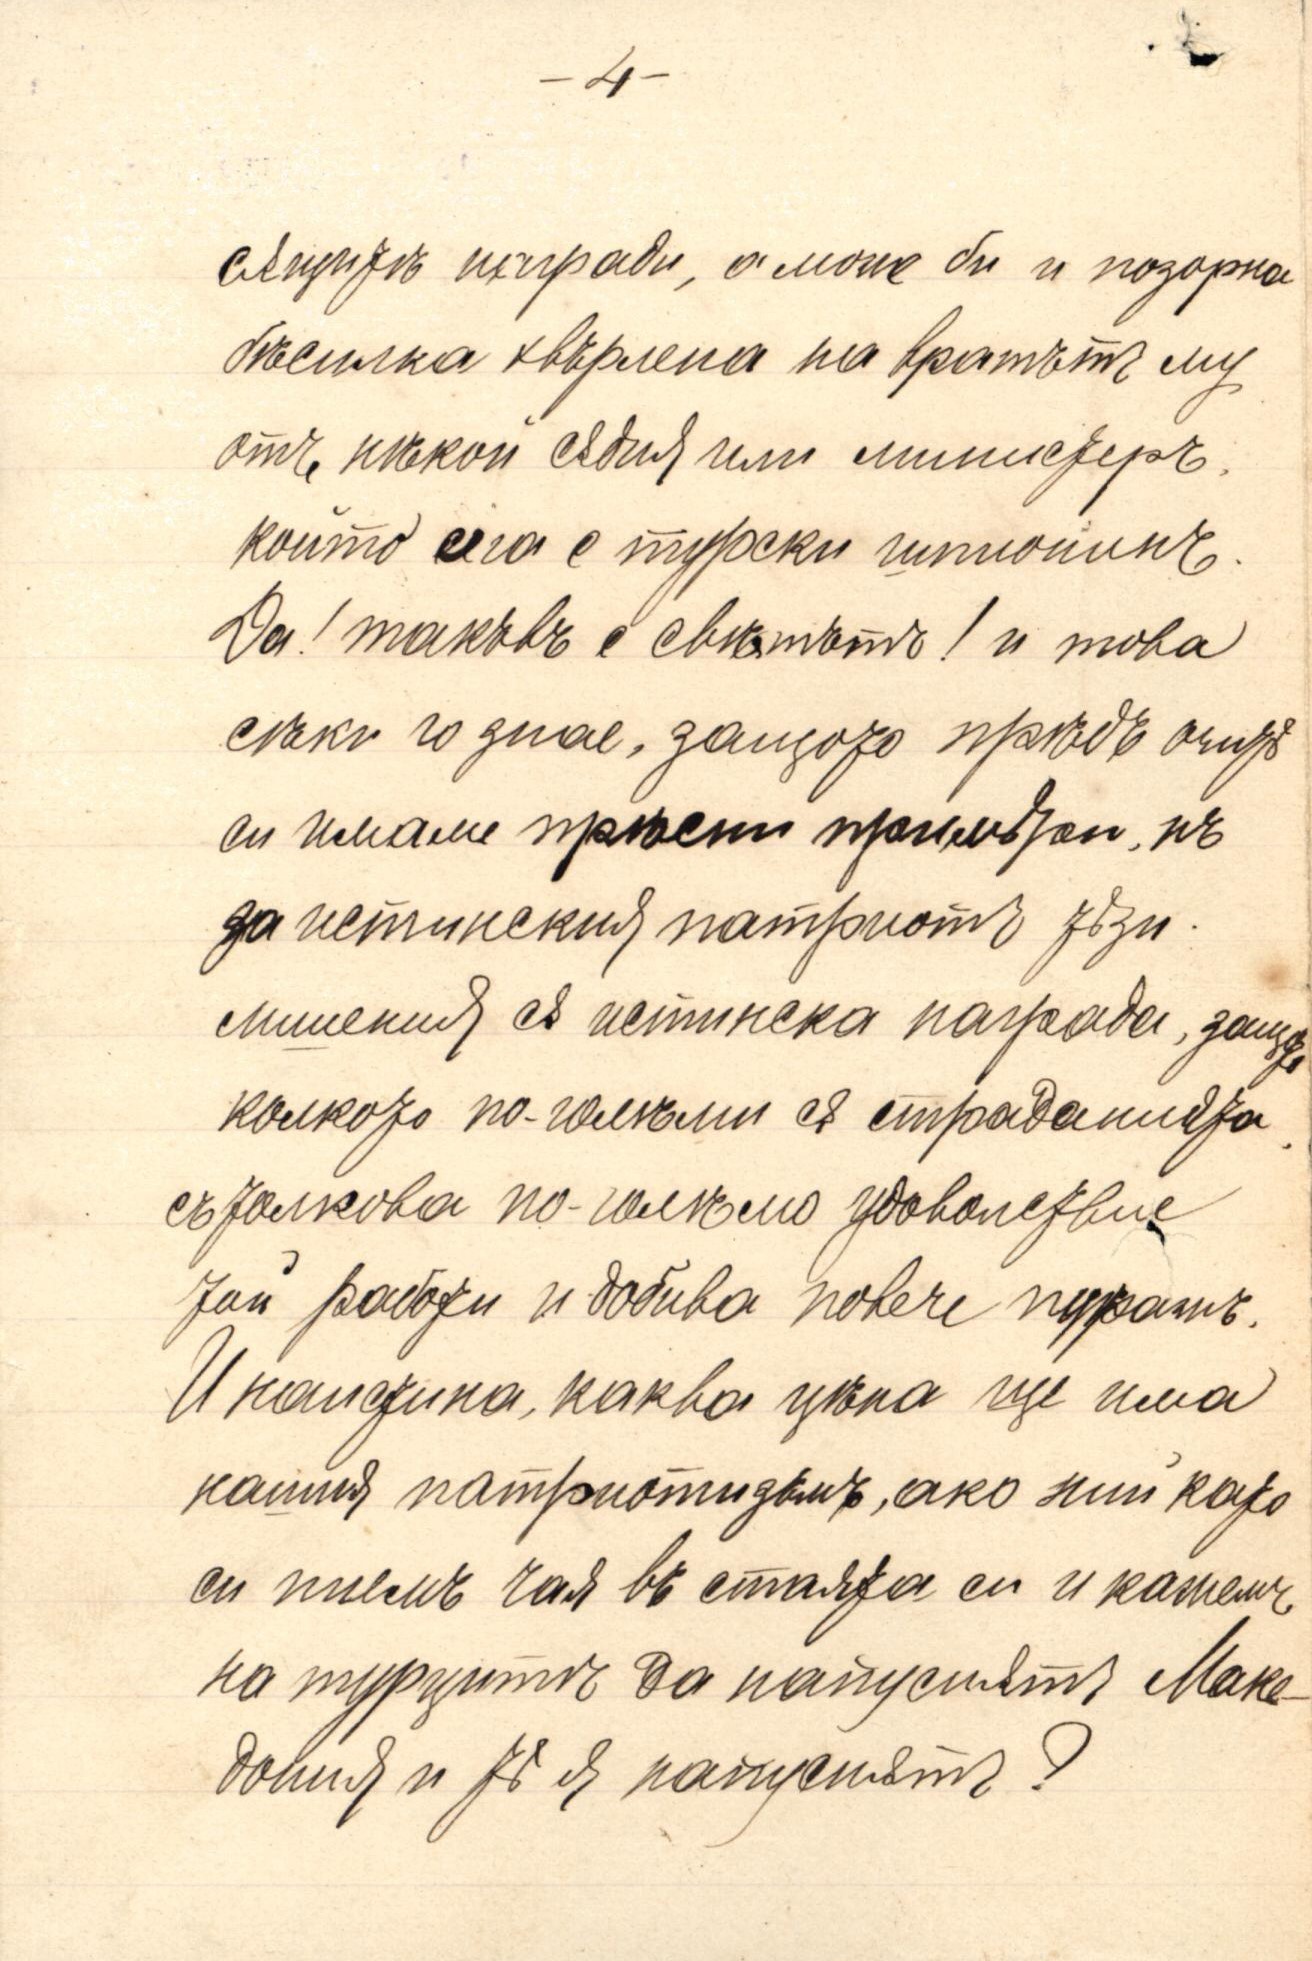 - 4 -
сѫщитѣ награди, а може би и позорна
бѣсилка хвърлена на вратътъ му
отъ нѣкой сѫдия или министеръ,
който сега е турски шпионинъ.
Да! такъвъ е свѣтътъ! и това
сѣки го знае, защото прѣдъ очитѣ
си имаме прѣсни примѣри, нъ
за истинския патриотъ тѣзи
мишения сѫ истинска награда, защото
колкото по-голѣми сѫ страданията,
съ толкова по-голѣмо удоволствие
той работи и добива повече куражъ.
И наистина, каква цѣна ще има
нашия патриотизъмъ, ако ний като
си пиемъ чая въ стаята си и кажемъ
на турцитѣ да напуснѫтъ Маке-
дония и тѣ я напуснѫтъ?